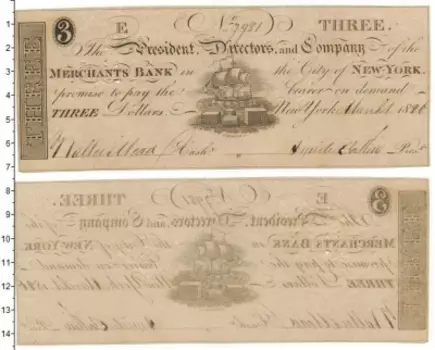 1
2
3
4
5
6
7
8
9
10
11
12
13
14
THREE
3
E
No 7981
THREE.
The President, Directors, and Company of the
MERCHANTS BANK in the City of NEW YORK.
promise to pay the bearer on demand
THREE Dollars. New York March 1
Cash
Pres
E
3
THREE.
The President, Directors, and Company of the
MERCHANTS BANK in the City of NEW YORK.
promise to pay the bearer on demand
THREE Dollars